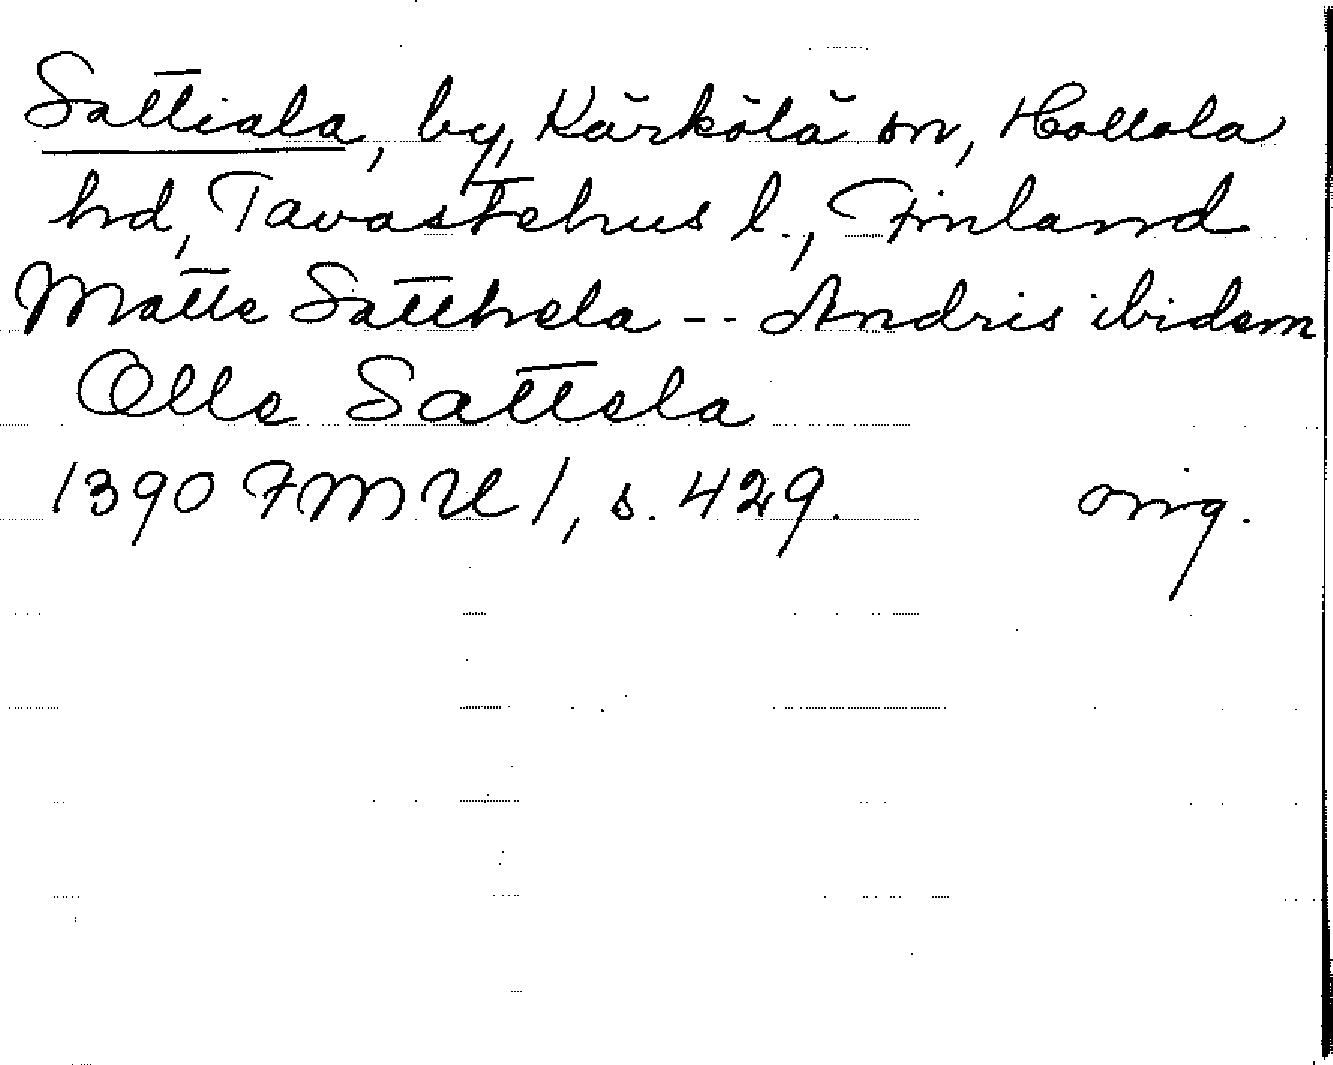 Sattiala, by, Kärkölä sn, Hollola
hd, Tavastehus l., Finland
Matte Satthela -- Andris ibidem
Olle Sattela
1390 FMU 1, s. 429. orig.